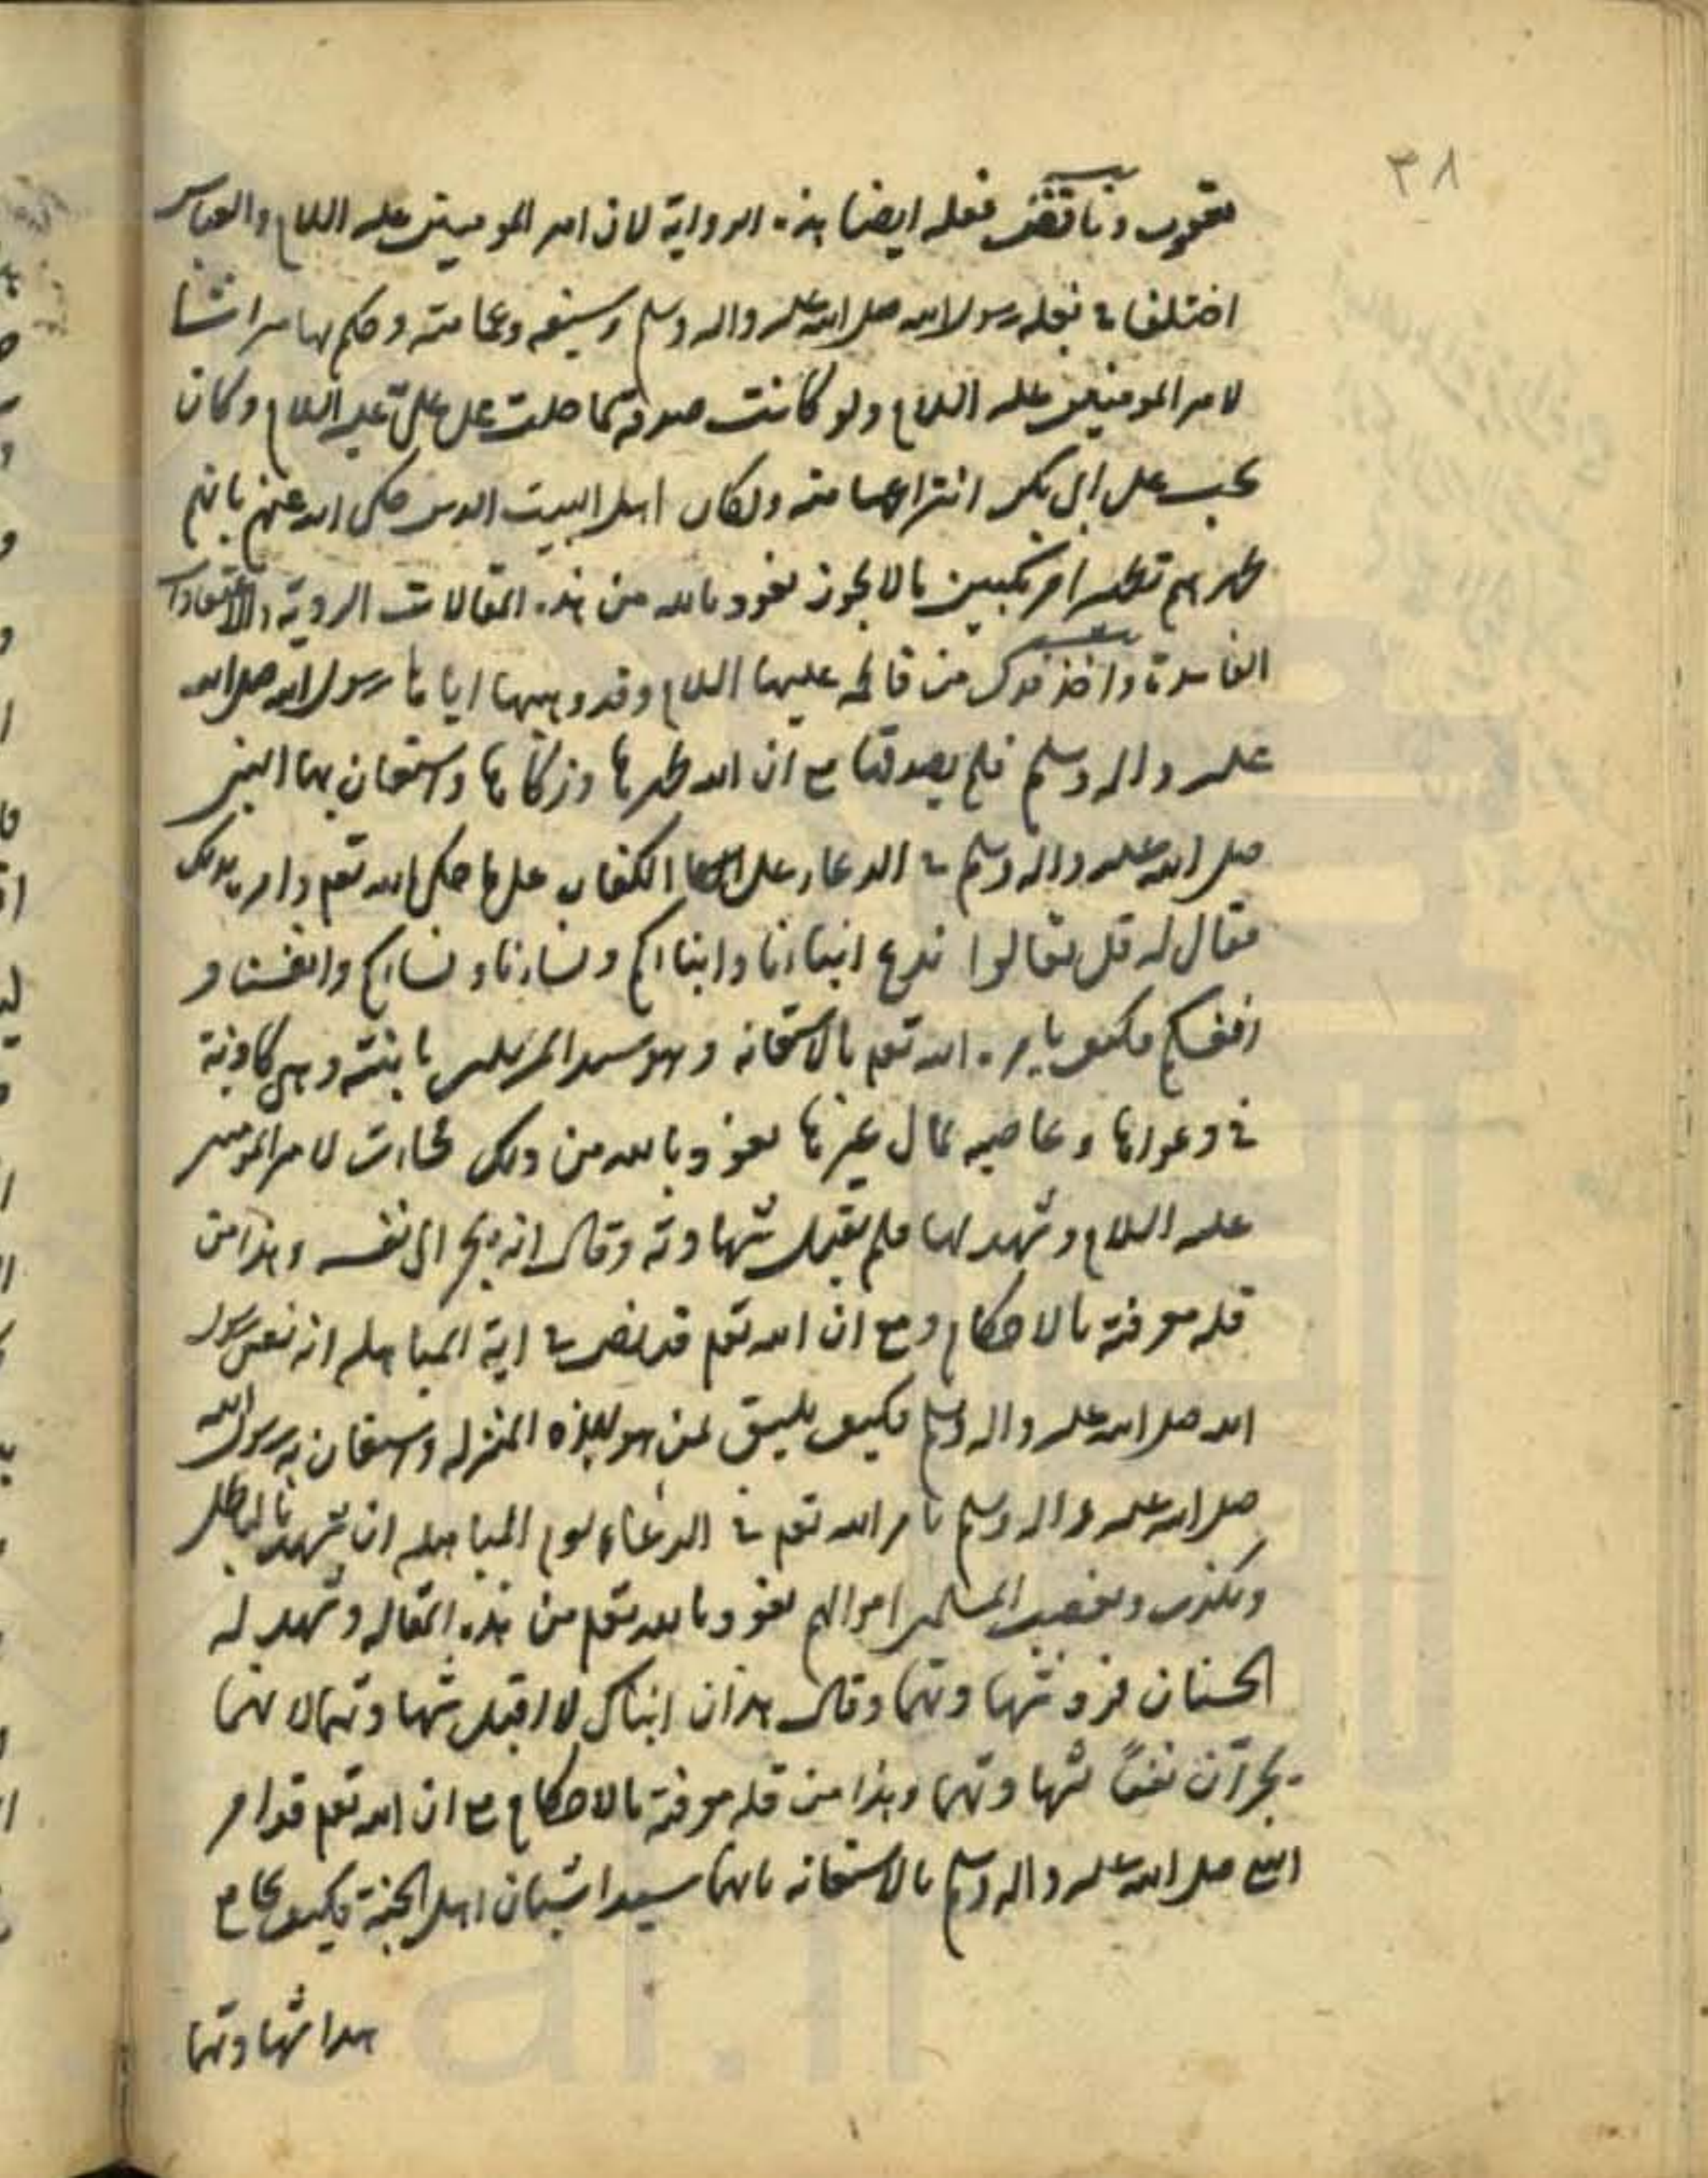 ٣٨
يعقوب وناقض فعله ايضا هذه الرواية لان امير المومنين عليه السلام والعباس
اختلفا في بغلة رسول الله صلى الله عليه واله وسلم وسيفه وعمامته وحكم بها ميراثا
لامير المومنين عليه السلام ولو كانت صدقة لما حلت على علي عليه السلام وكان
يجب على ابي بكر انتزاعها منه ولكان اهل البيت الدين حكى الله عنهم بانهم
طهرهم تطهيرا مرتكبين مالا يجوز نعوذ بالله من هذه المقالات الردية والاعتقادات
الفاسدة واخذ فدك من فاطمه عليها السلام وقد وهبها اياها رسول الله صلى الله
عليه واله وسلم فلم يصدقها مع ان الله طهرها وزكاها واستعان بها النبي
صلى الله عليه واله وسلم في الدعاء على الكفار على ما حكى الله تعم وامره بذلك
فقال له قل تعالوا ندع ابناءنا وابناءكم ونساءنا ونساءكم وانفسنا و
انفسكم فكيف يامره الله تعم بالاستعانه وهو سيد المرسلين بابنته وهي كاذبة
في دعواها وغاصبه لمال غيرها نعوذ بالله من ذلك فجاءت لامير المومنين
عليه السلام وشهد لها فلم يقبل شهادته وقال انه يجر الى نفسه وهذا من
قله معرفته بالاحكام ومع ان الله تعم قد نص في اية المباهله انه نفس رسول
الله صلى الله عليه واله وسلم فكيف يليق لمن هو بهذه المنزله واستعان به رسول الله
صلى الله عليه واله وسلم بامر الله تعم في الدعاء يوم المباهله ان يشهد بالباطل
ويكذب ويغصب المسلمين اموالهم نعوذ بالله تعم من هذه المقاله وشهد له
الحسنان فرد شهادتهما وقال هذان ابناك لا اقبل شهادتهما لانهما
يجرّان نفعاً بشهادتهما وهذا من قله معرفته بالاحكام مع ان الله تعم قد امر
النبي صلى الله عليه واله وسلم بالاستعانه بانهما سيدا شبان اهل الجنة فكيف يجامع
هدا شهادتهما